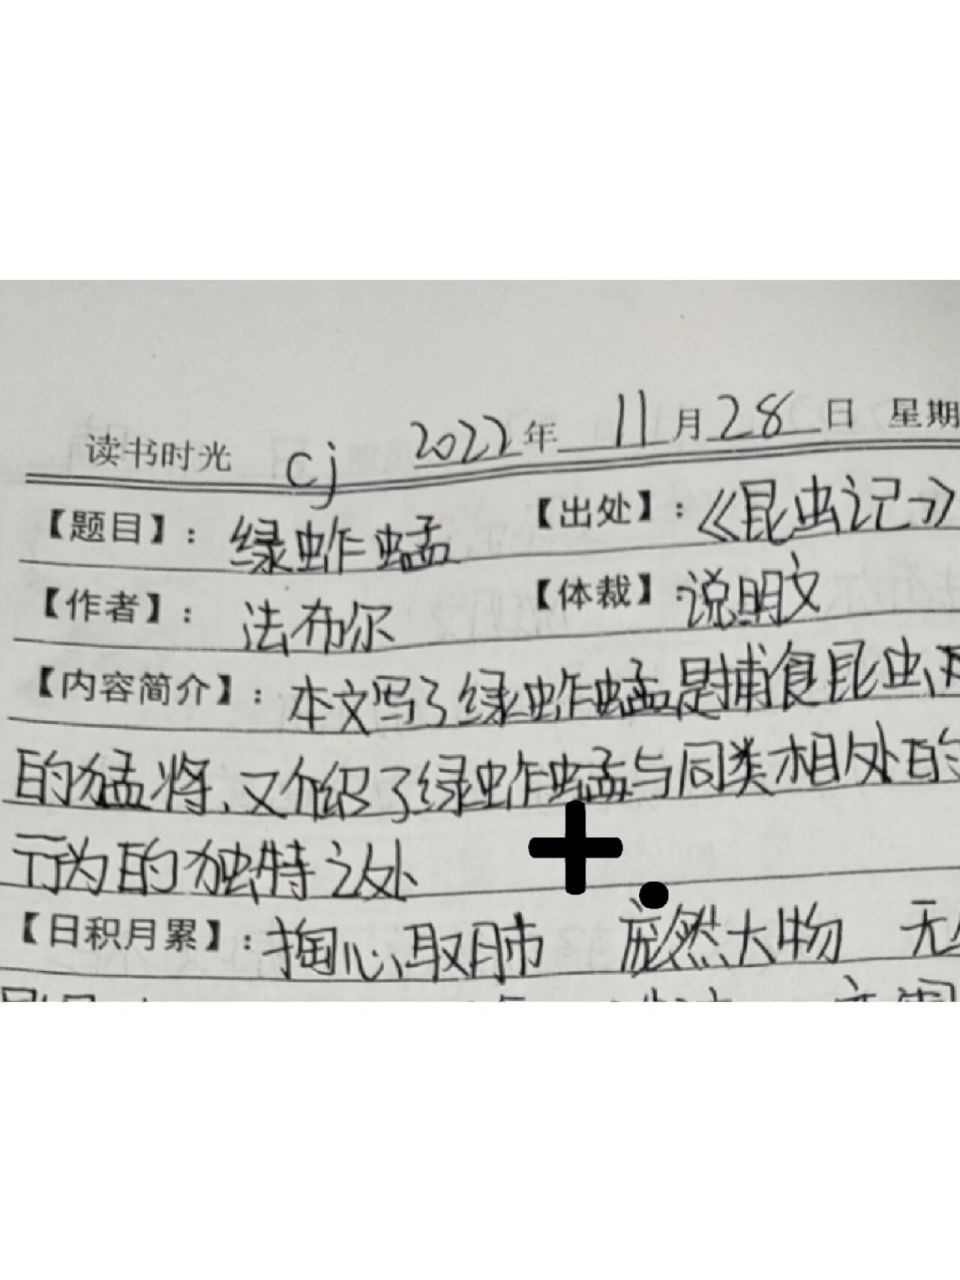 读书时光 cj 2022年 11月28日 星期
【题目】: 绿蚱蜢 【出处】: 《昆虫记》
【作者】: 法布尔 【体裁】: 说明文
【内容简介】: 本文写了绿蚱蜢是捕食昆虫
的猛将、又介绍了绿蚱蜢与同类相处的
行为的独特之处
【日积月累】: 掏心取肺 庞然大物 无